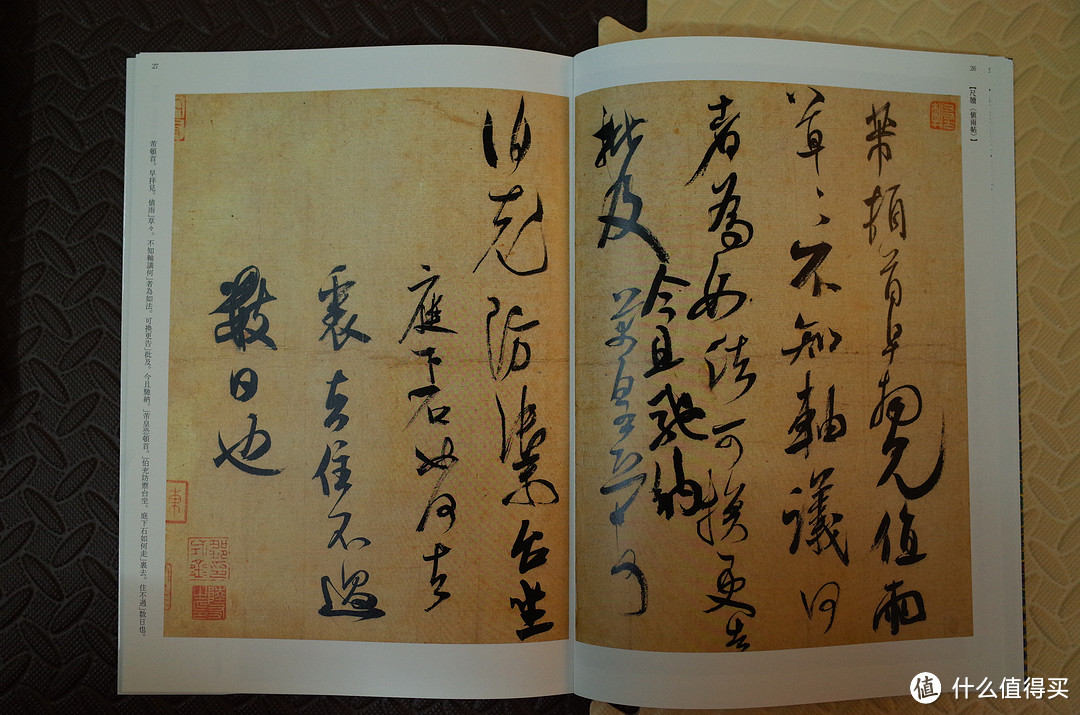 26
【尺牘《値雨帖》】
芾頓首早拜見值雨
草〻不知軸議何
者為如法可換更告
批及今且馳納
芾皇恐頓首
伯充防禦台坐
庭下石如何去
裏去住不過
數日也
27
芾頓首。早拝見。値雨」草々。不知軸議何」者為如法。可換更告」批及。今且馳納。」芾皇恐頓首。」伯充防禦台坐。庭下石如何走」裏去。住不過」数日也。
值 什么值得买